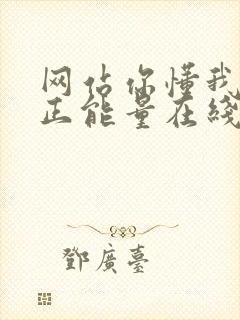 网站你懂我
正能量在线
鄧廣臺